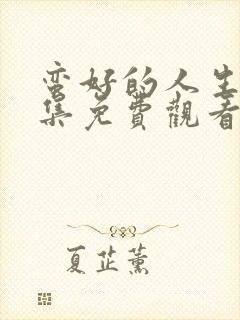 蛮好的人生
集免費觀看
夏芷薰